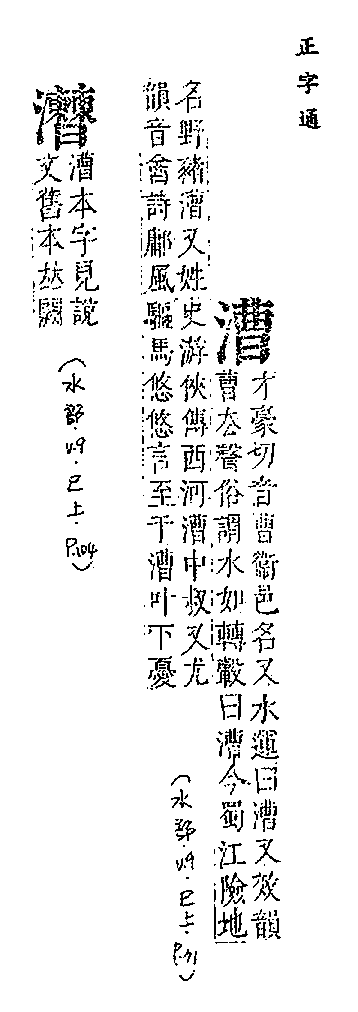 正字通
漕
才豪切音曹衞邑名又水運曰漕又效韻
曹去聲俗謂水如轉轂曰漕今蜀江險地
名野豬漕又姓史游俠傳西河漕中叔又尤
韻音酋詩鄘風驅馬悠悠言至于漕叶下憂
(水部.49.巳上.P.71)
漕本字見說
文舊本闕
(水部.49.巳上.P.104)